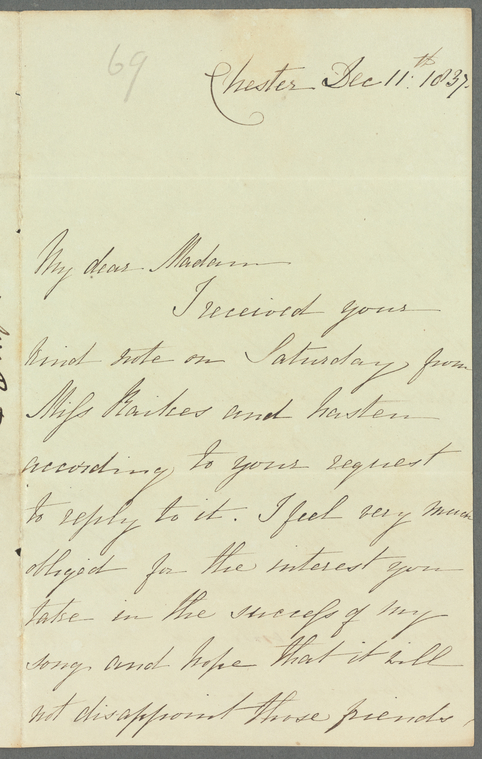 69
Chester Dec 11th 1837.
My dear Madam
I received your
kind note on Saturday from
Miss Raikes and hasten
according to your request
to reply to it. I feel very much
obliged for the interest you
take in the success of my
song and hope that it will
not disappoint those friends,